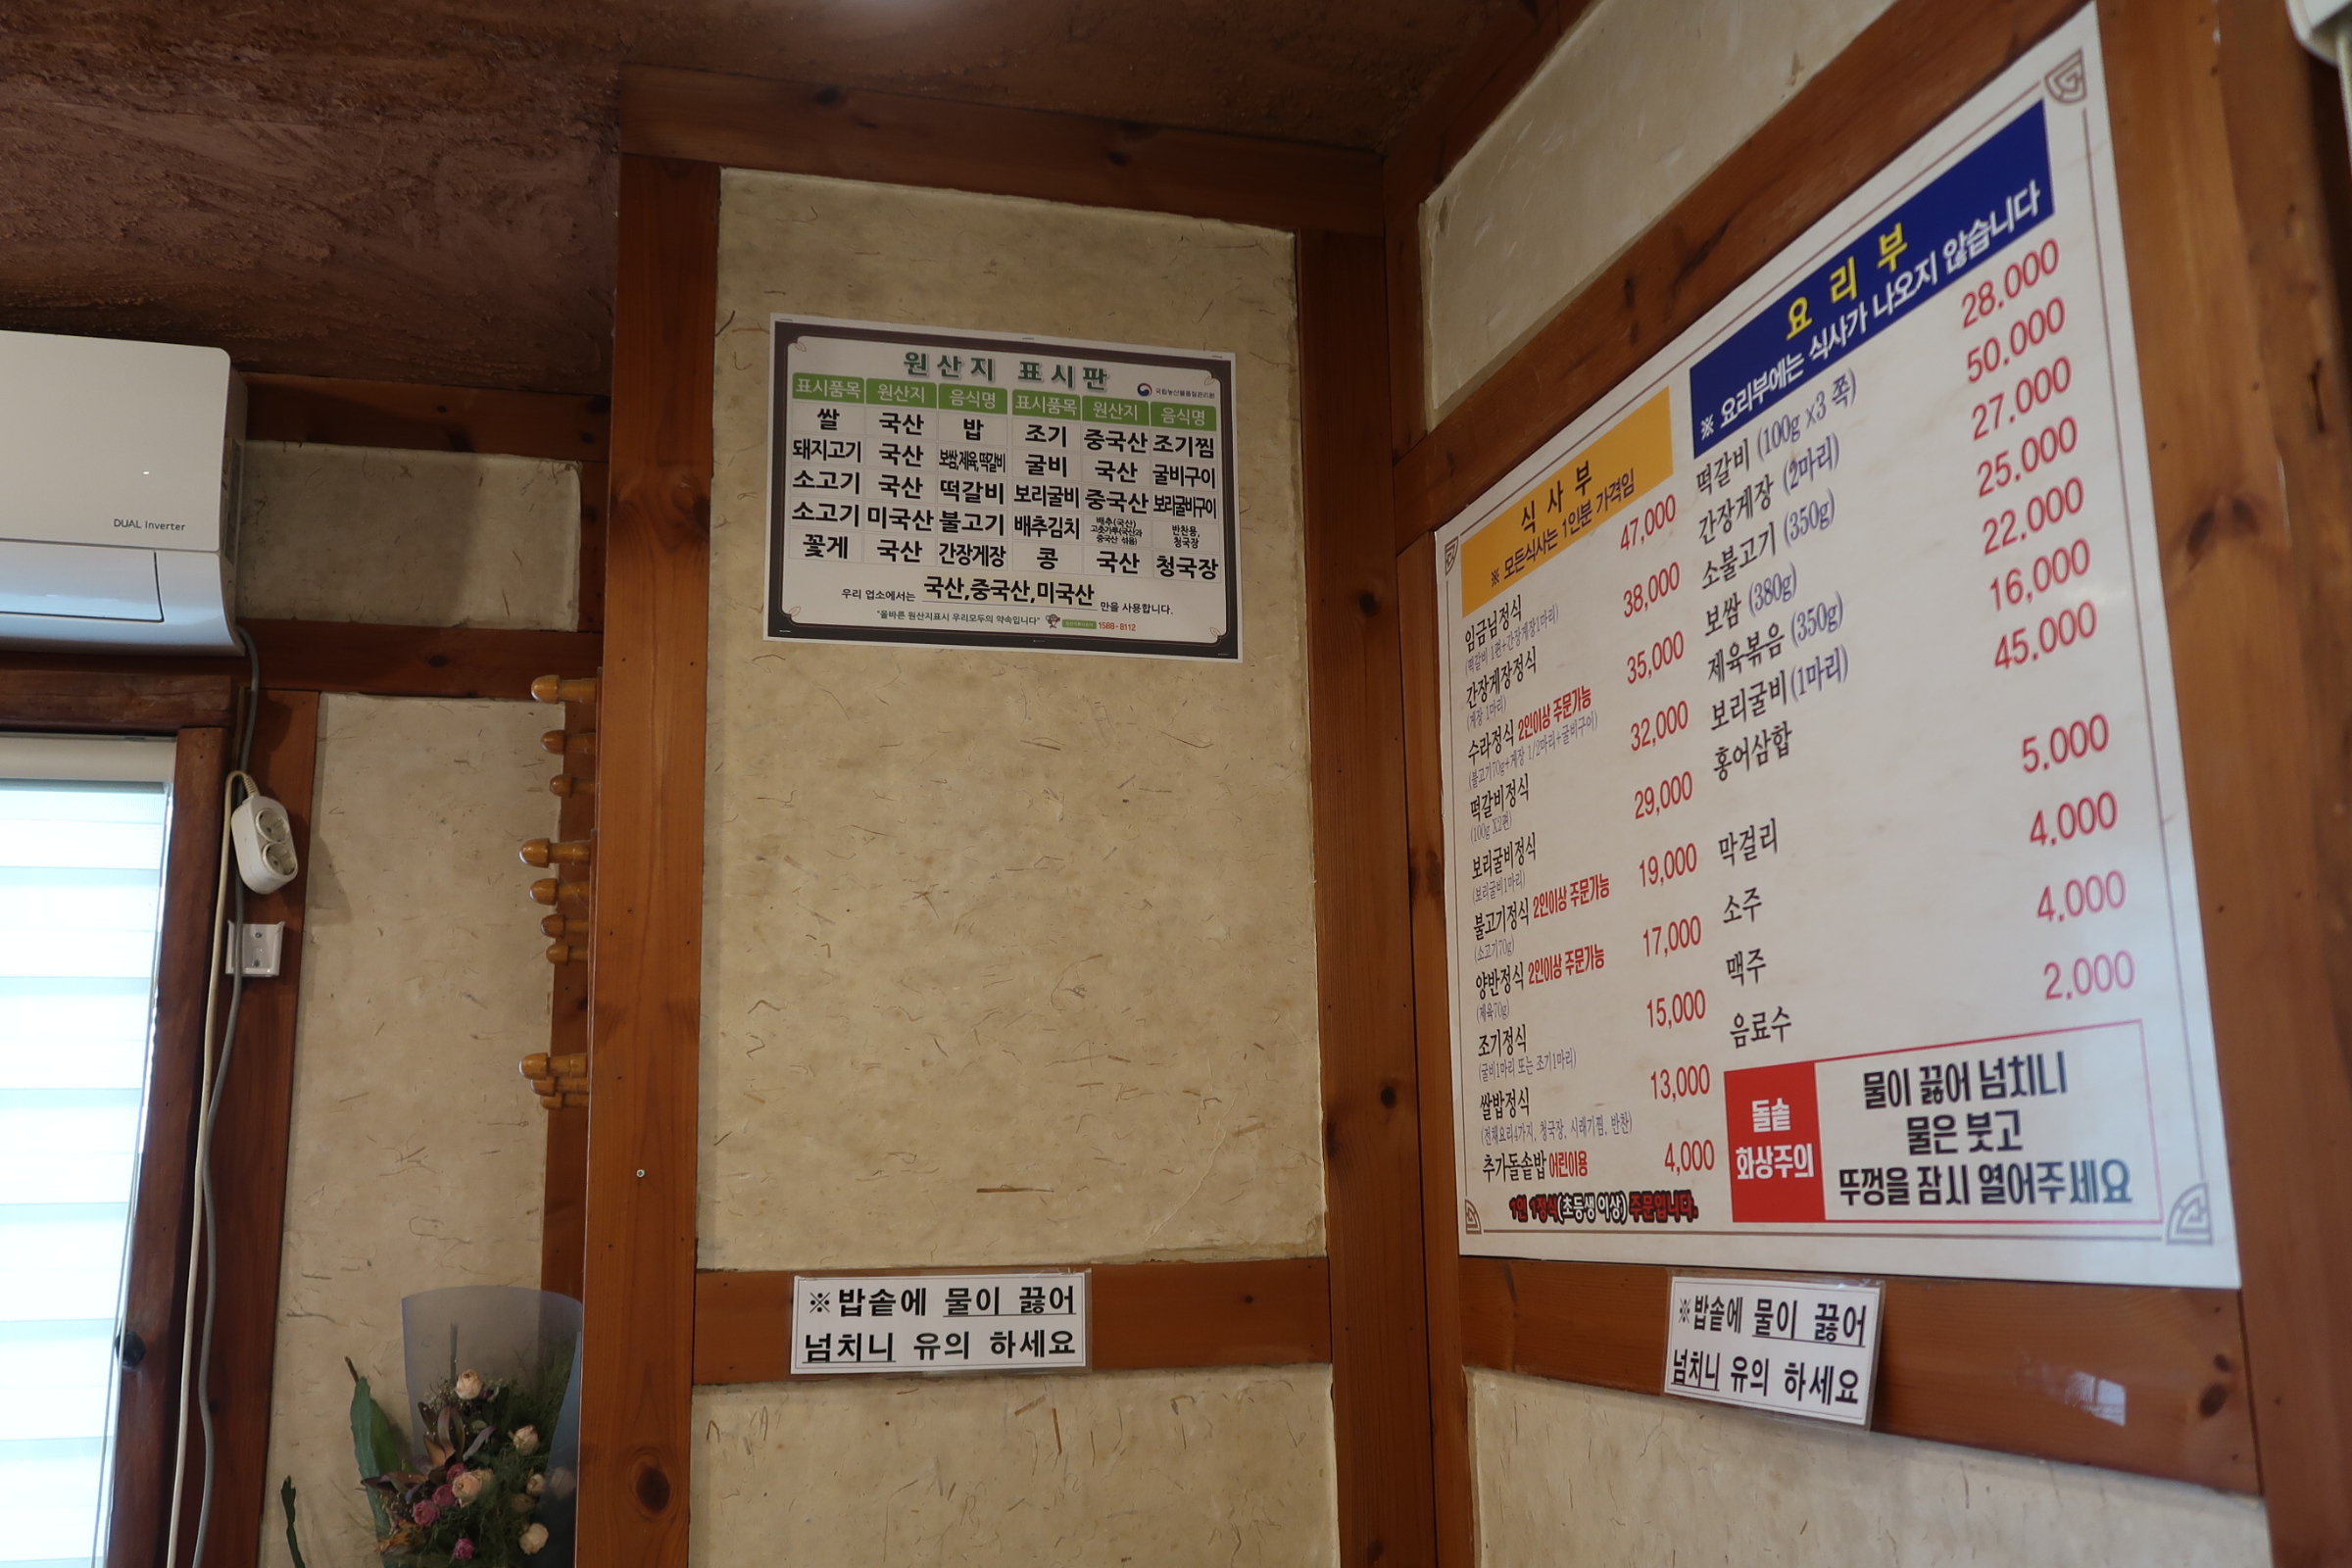 DUAL Inverter
원산지 표시판
국립농산물품질관리원
표시품목 원산지 음식명 표시품목 원산지 음식명
쌀 국산 밥 조기 중국산 조기찜
돼지고기 국산 보쌈,제육,떡갈비 굴비 국산 굴비구이
소고기 국산 떡갈비 보리굴비 중국산 보리굴비구이
소고기 미국산 불고기 배추김치 배추(국산) 고춧가루(국산과 중국산 섞음) 반찬용, 청국장
꽃게 국산 간장게장 콩 국산 청국장
우리 업소에서는 국산,중국산,미국산 만을 사용합니다.
"올바른 원산지표시 우리모두의 약속입니다" 1588-8112
※밥솥에 물이 끓어
넘치니 유의 하세요
식 사 부
※ 모든식사는 1인분 가격임
임금님정식 47,000
(떡갈비 1편+간장게장1마리)
간장게장정식 38,000
(게장 1마리)
수라정식 2인이상 주문가능 35,000
(불고기70g+게장 1/2마리+굴비구이)
떡갈비정식 32,000
(100g X2편)
보리굴비정식 29,000
(보리굴비1마리)
불고기정식 2인이상 주문가능 19,000
(소고기70g)
양반정식 2인이상 주문가능 17,000
(제육70g)
조기정식 15,000
(굴비1마리 또는 조기1마리)
쌀밥정식 13,000
(전채요리4가지, 청국장, 시래기찜, 반찬)
추가돌솥밥 어린이용 4,000
1인 1정식(초등생 이상) 주문입니다.
요 리 부
※ 요리부에는 식사가 나오지 않습니다
떡갈비 (100g x3 쪽) 28.000
간장게장 (2마리) 50.000
소불고기 (350g) 27.000
보쌈 (380g) 25.000
제육볶음 (350g) 22.000
보리굴비 (1마리) 16,000
홍어삼합 45.000
막걸리 5.000
소주 4.000
맥주 4.000
음료수 2,000
돌솥
화상주의
물이 끓어 넘치니
물은 붓고
뚜껑을 잠시 열어주세요
※밥솥에 물이 끓어
넘치니 유의 하세요